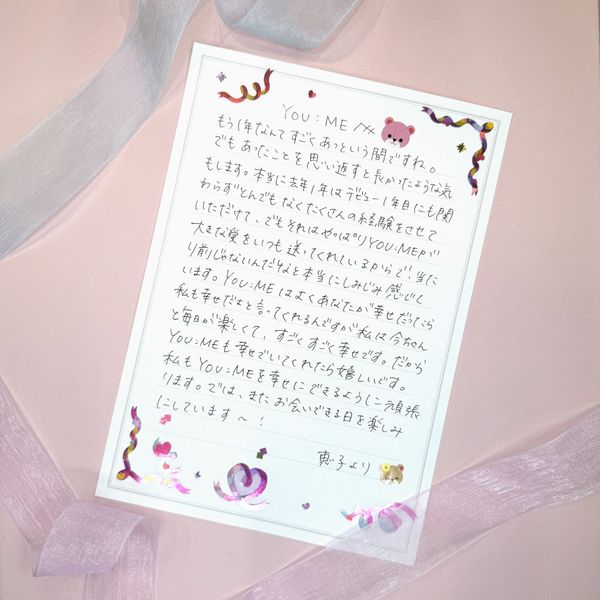 YOU:ME へ
もう1年なんてすごくあっという間ですね。
でもあったことを思い返すと長かったような気
もします。本当に去年1年はデビュー1年目にも関
わらずとんでもなくたくさんの経験をさせて
いただけて、でもそれはやっぱりYOU:MEが
大きな愛をいつも送ってくれているからで、当た
り前じゃないんだなと本当にしみじみ感じて
います。YOU:MEはよくあなたが幸せだったら
私も幸せだよと言ってくれるんですが私は今ちゃん
と毎日が楽しくて、すごくすごく幸せです。だから
YOU:MEも幸せでいてくれたら嬉しいです。
私もYOU:MEを幸せにできるように頑張
ります。では、またお会いできる日を楽しみ
にしています〜！
恵子より